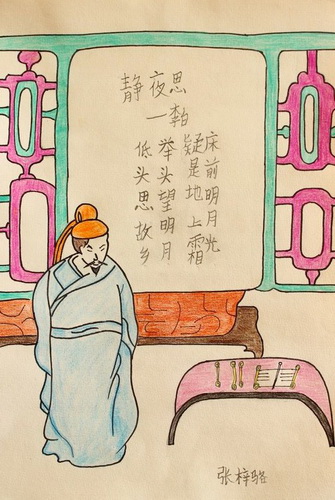 静夜思
—李白
床前明月光
疑是地上霜
举头望明月
低头思故乡
张梓骆